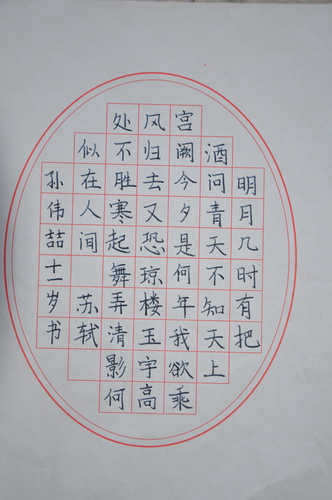 明月几时有把
酒问青天不知天上
宫阙今夕是何年我欲乘
风归去又恐琼楼玉宇高
处不胜寒起舞弄清影何
似在人间 苏轼
孙伟喆十一岁书